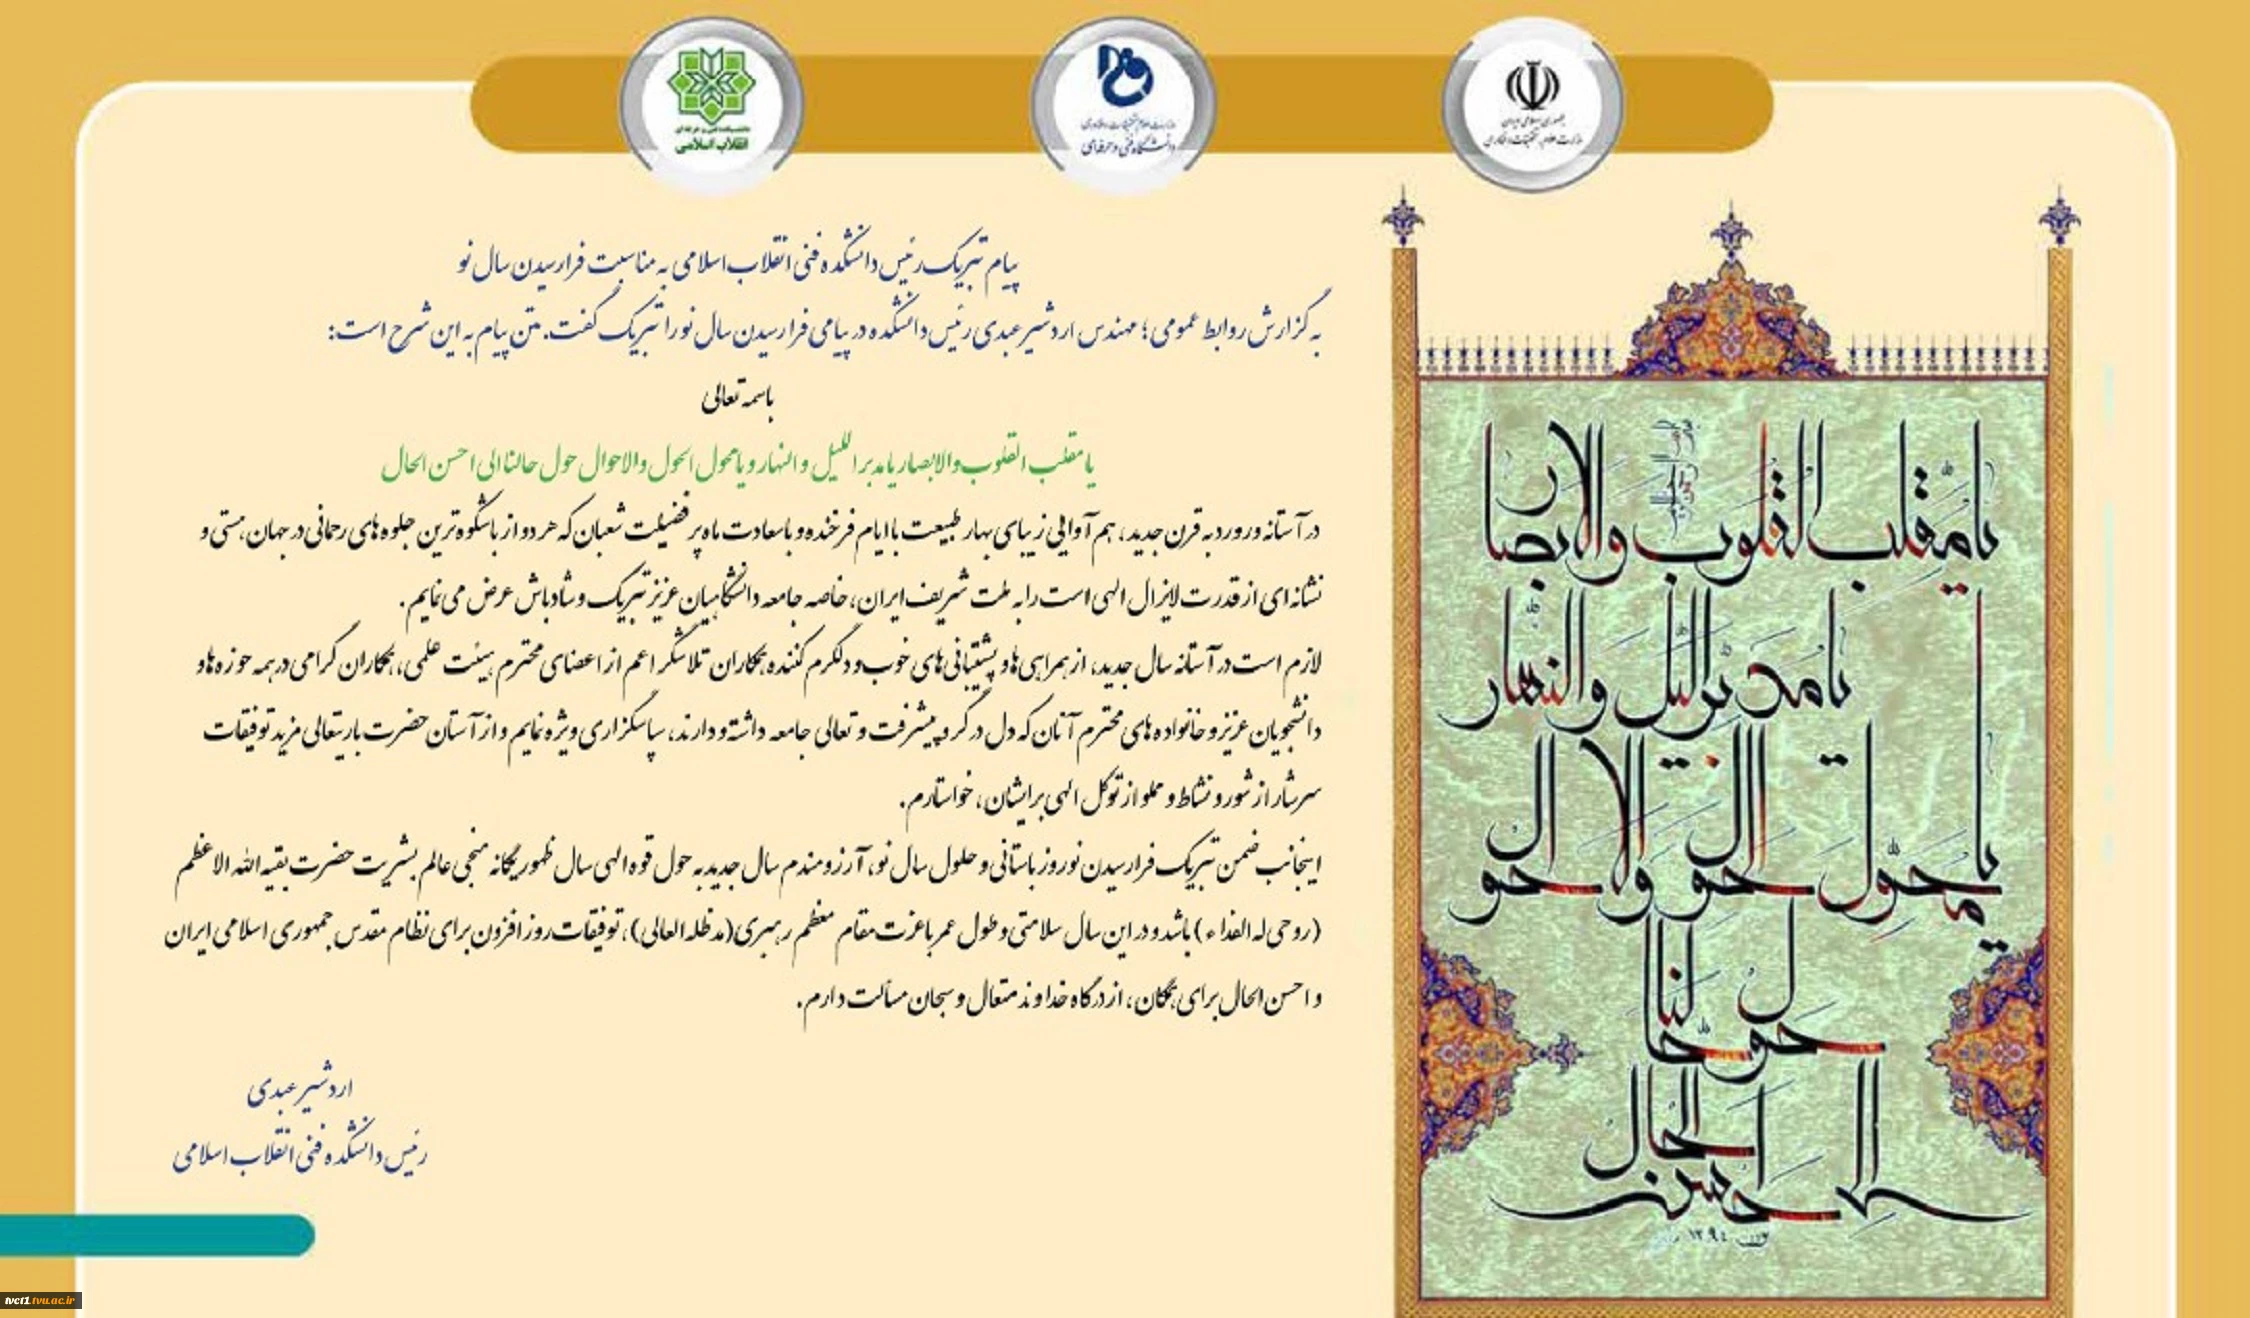 جمهوری اسلامی ایران
وزارت علوم، تحقیقات و فناوری
وزارت علوم، تحقیقات و فناوری
دانشگاه فنی و حرفه‌ای
دانشکده فنی و حرفه ای
انقلاب اسلامی
پیام تبریک رئیس دانشکده فنی انقلاب اسلامی به مناسبت فرارسیدن سال نو
به گزارش روابط عمومی؛ مهندس اردشیر عبدی رئیس دانشکده در پیامی فرارسیدن سال نو را تبریک گفت. متن پیام به این شرح است:
باسمه تعالی
یا مقلب القلوب والابصار یا مدبر اللیل و النهار و یا محول الحول والاحوال حول حالنا الی احسن الحال
در آستانه ورود به قرن جدید، هم آوایی زیبای بهار طبیعت با ایام فرخنده و با سعادت ماه پر فضیلت شعبان که هر دو از باشکوه ترین جلوه های رحمانی در جهان هستی و
نشانه ای از قدرت لایزال الهی است را به ملت شریف ایران، خاصه جامعه دانشگاهیان عزیز تبریک و شادباش عرض می نمایم.
لازم است در آستانه سال جدید، از همراهی ها و پشتیبانی های خوب و دلگرم کننده همکاران تلاشگر اعم از اعضای محترم هیئت علمی، همکاران گرامی در همه حوزه ها و
دانشجویان عزیز و خانواده های محترم آنان که دل در گرو پیشرفت و تعالی جامعه داشته و دارند، سپاسگزاری ویژه نمایم و از آستان حضرت باریتعالی مزید توفیقات
سرشار از شور و نشاط و مملو از توکل الهی برایشان، خواستارم.
اینجانب ضمن تبریک فرارسیدن نوروز باستانی و حلول سال نو، آرزومندم سال جدید به حول قوه الهی سال ظهور یگانه منجی عالم بشریت حضرت بقیه الله الاعظم
(روحی له الفداء) باشد و در این سال سلامتی و طول عمر با عزت مقام معظم رهبری(مدظله العالی)، توفیقات روز افزون برای نظام مقدس جمهوری اسلامی ایران
و احسن الحال برای همگان، از درگاه خداوند متعال و سبحان مسألت دارم.
اردشیر عبدی
رئیس دانشکده فنی انقلاب اسلامی
یا مقلب القلوب والابصار
یا مدبر اللیل والنهار
یا محول الحول والاحوال
حول حالنا
الی احسن الحال
۱۳۹۴
tvct1.tvu.ac.ir